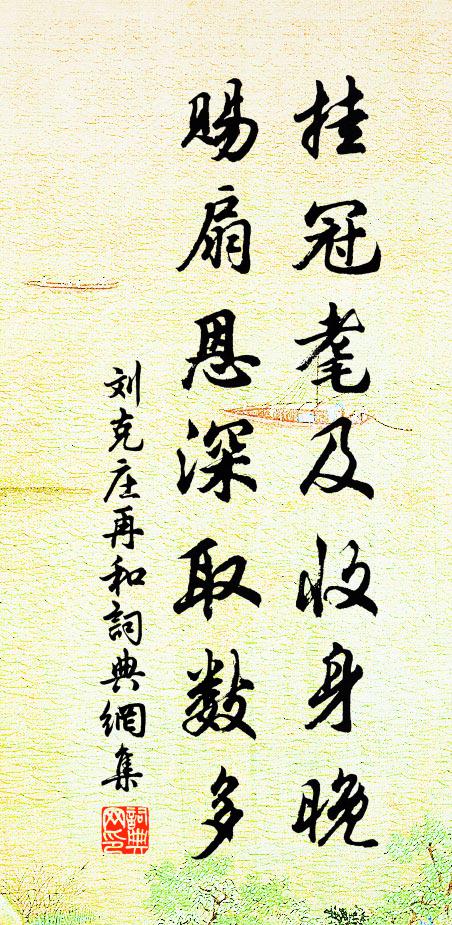 挂冠耄及收身晚
赐扇恩深取数多
刘克庄再和詞典網集
詞典网印